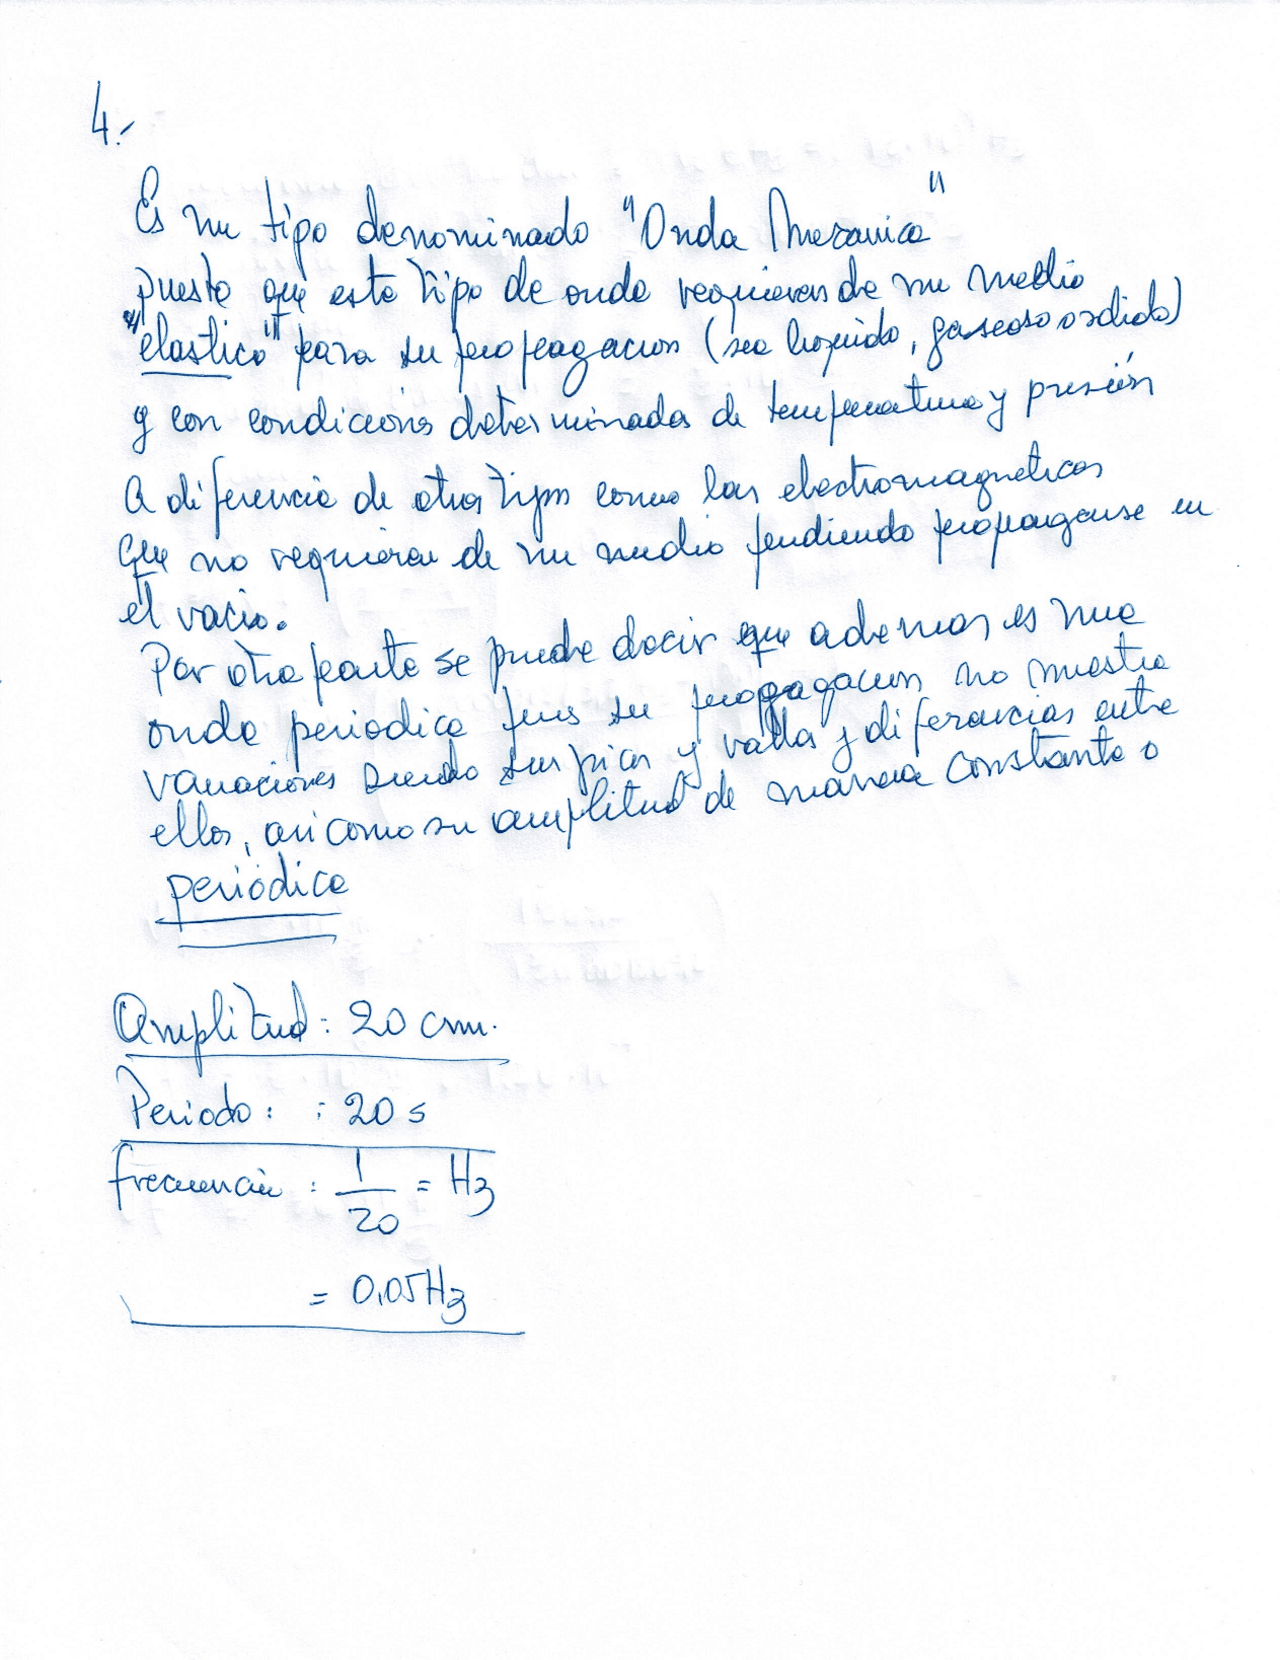 4.-
Es un tipo denominado "Onda Mecanica"
puesto que este tipo de onda requieren de un medio
"elastico" para su propagacion (sea liquido, gaseoso o solido)
y con condiciones determinadas de temperatura y presión
A diferencia de otros tipos como las electromagneticas
que no requieren de un medio pudiendo propagarse en
el vacio.
Por otra parte se puede decir que ademas es una
onda periodica pues su propagacion no muestra
variaciones siendo sus picos y valles y diferencias entre
ellos, asi como su amplitud de manera constante o
periódica
Amplitud: 20 cm.
Periodo: : 20 s
frecuencia : 1/20 = Hz
= 0,05 Hz